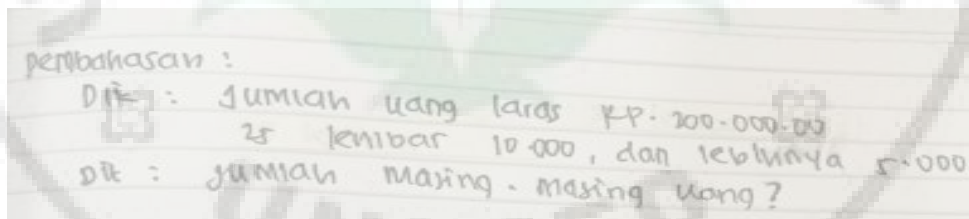 pembahasan :
Dik : Jumlah uang laras Rp. 200.000.00
25 lembar 10.000, dan lebihnya 5.000
Dit : Jumlah masing-masing uang?